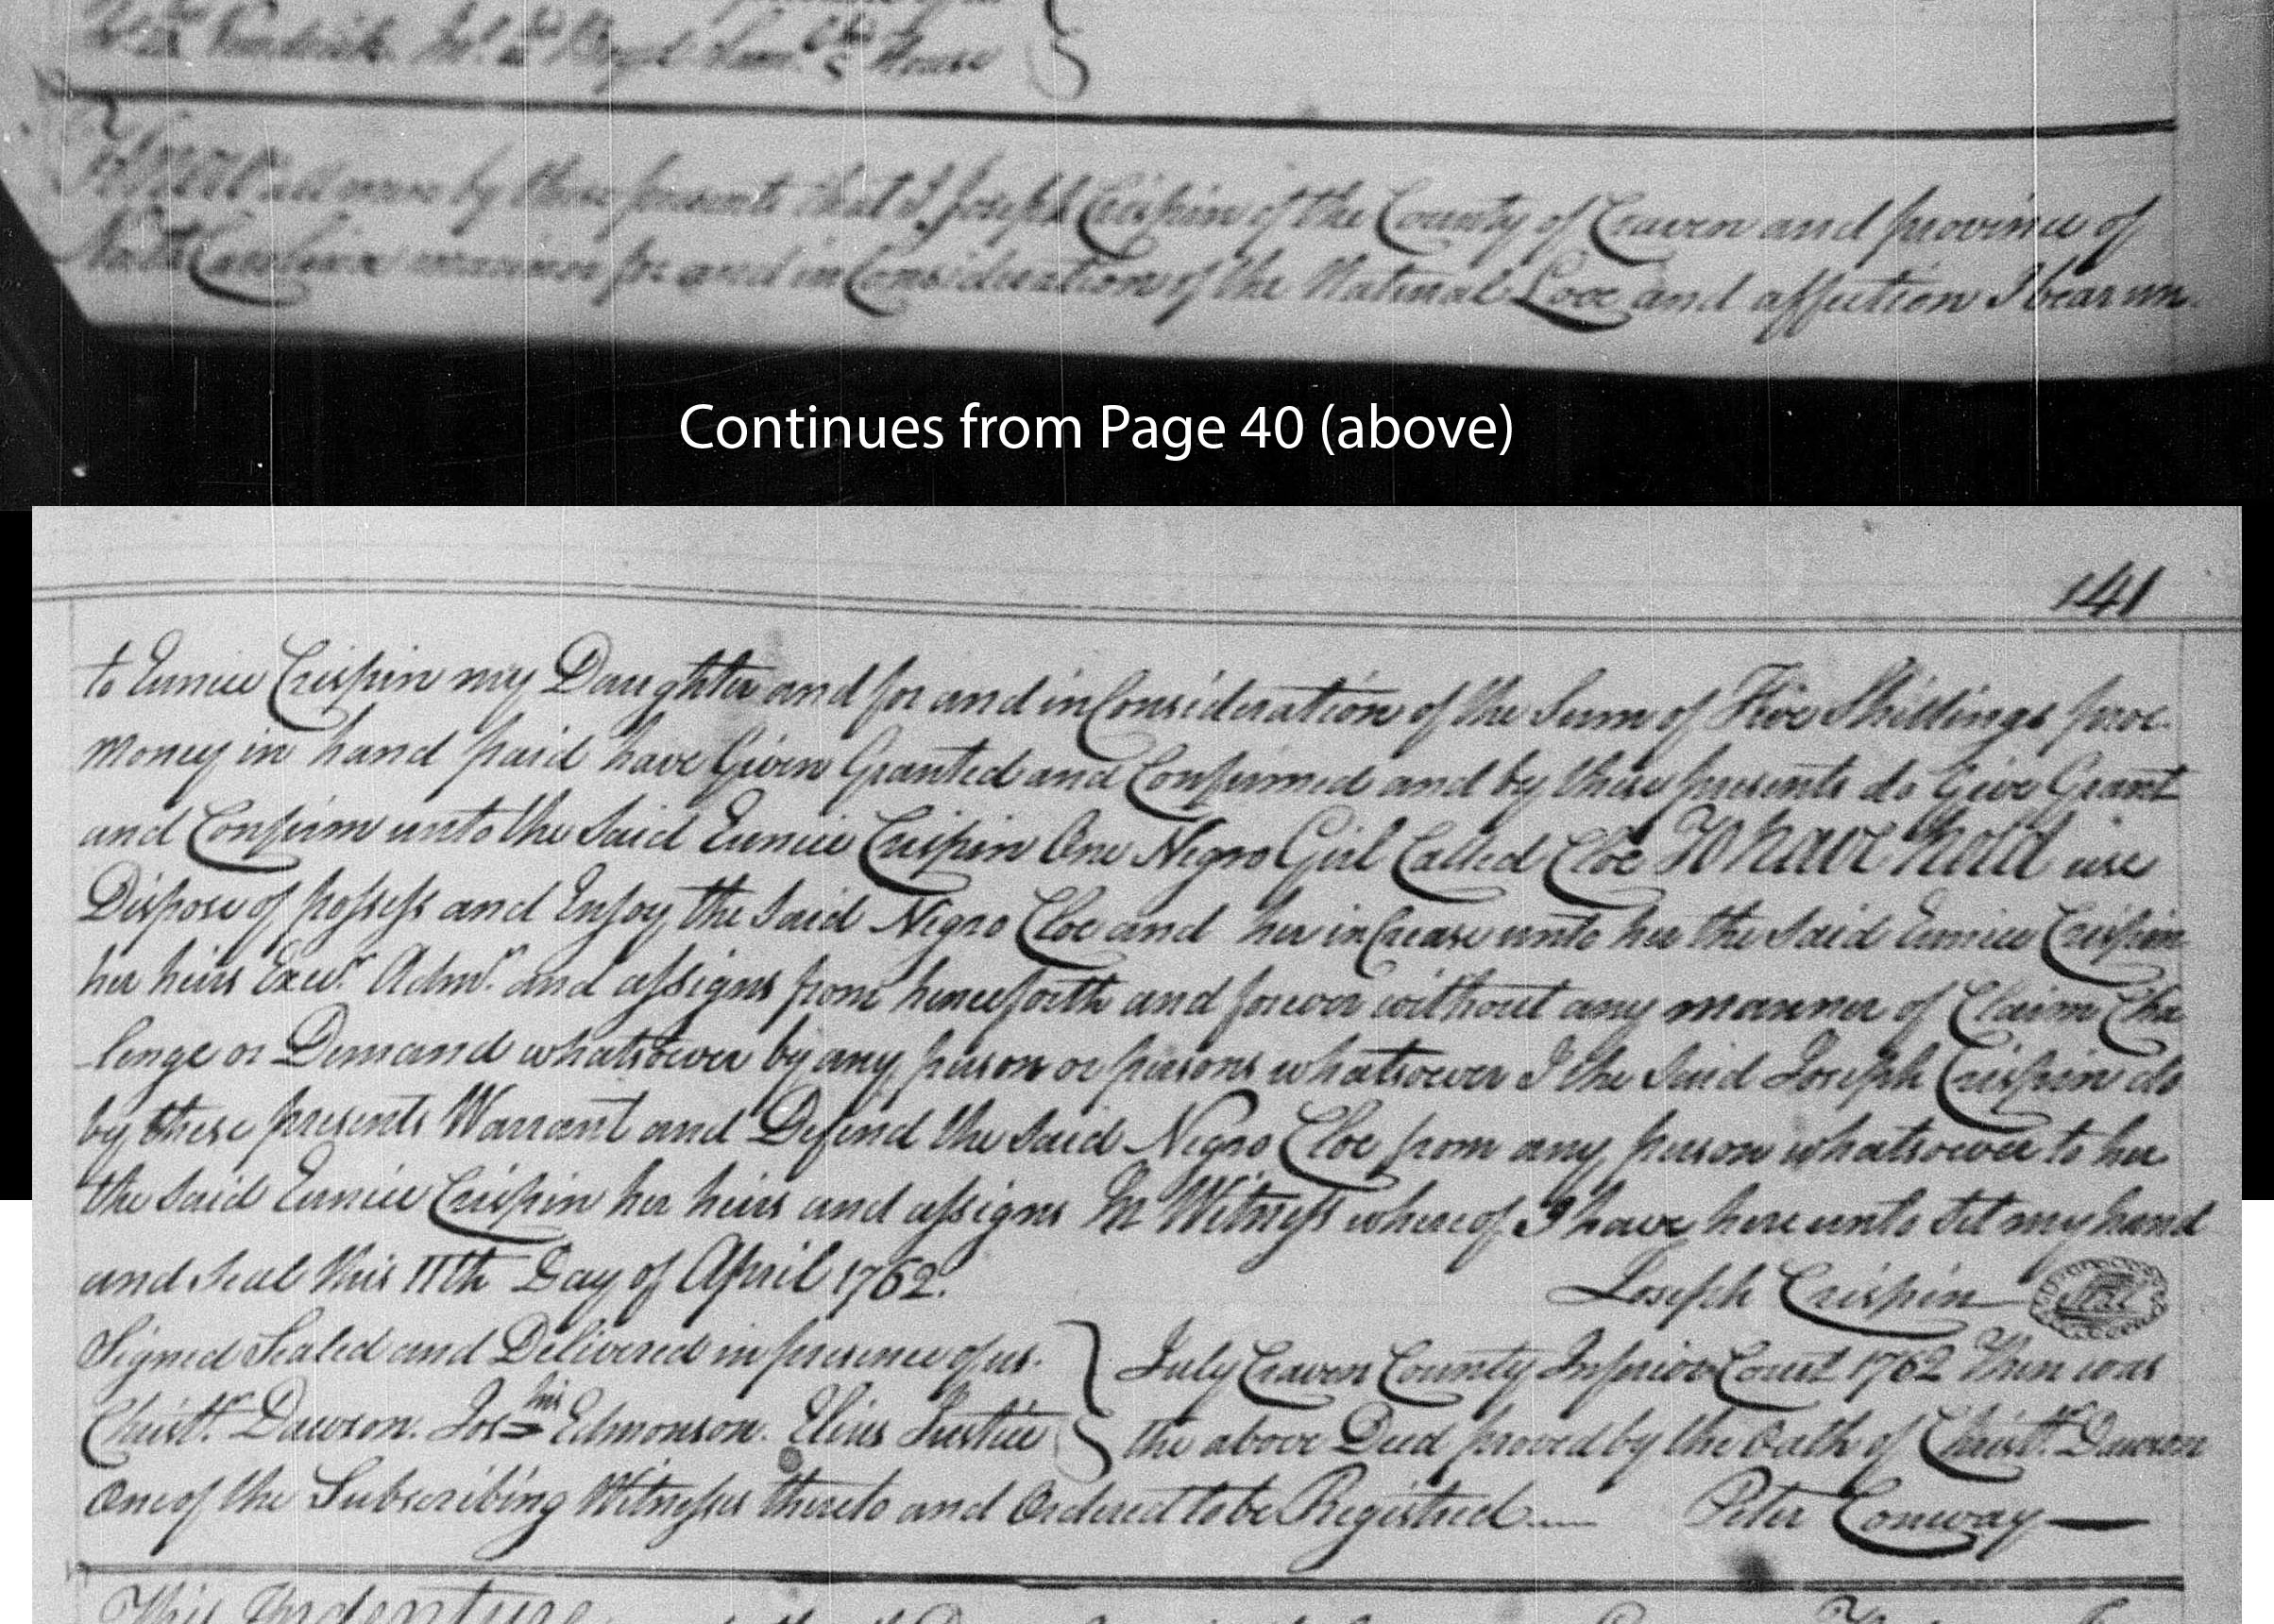 House
Know all men by these presents that I Joseph Crispin of the County of Craven and province of
North Carolina mariner for and in Consideration of the Natural Love and affection I bear un
Continues from Page 40 (above)
141
to Eunice Crispin my Daughter and for and in Consideration of the Sum of Five Shillings proc.
Money in hand paid have Given Granted and Confirmed and by these presents do Give Grant
and Confirm unto the Said Eunice Crispin One Negro Girl Called Cloe To have hold use
Dispose of possess and Enjoy the Said Negro Cloe and her inCrease unto her the Said Eunice Crispin
her heirs Exers. Admrs. and assigns from henceforth and forever without any manner of Claim Cha
lenge or Demand whatsoever by any person or persons whatsoever I the Said Joseph Crispin do
by these presents Warrant and Defend the Said Negro Cloe from any person whatsoever to her
the Said Eunice Crispin her heirs and assigns In Witness whereof I have here unto Set my hand
and Seal this 11th Day of April 1762.
Joseph Crispin Seal
Signed Sealed and Delivered in presence of us. } July Craven County Inferior Court 1762 Then was
Christr. Dawson. Jos his Edmonson. Elias Justice } the above Deed proved by the Oath of Christr. Dawson
One of the Subscribing Witnesses thereto and Ordered to be Registred Peter Conway
This Indenture